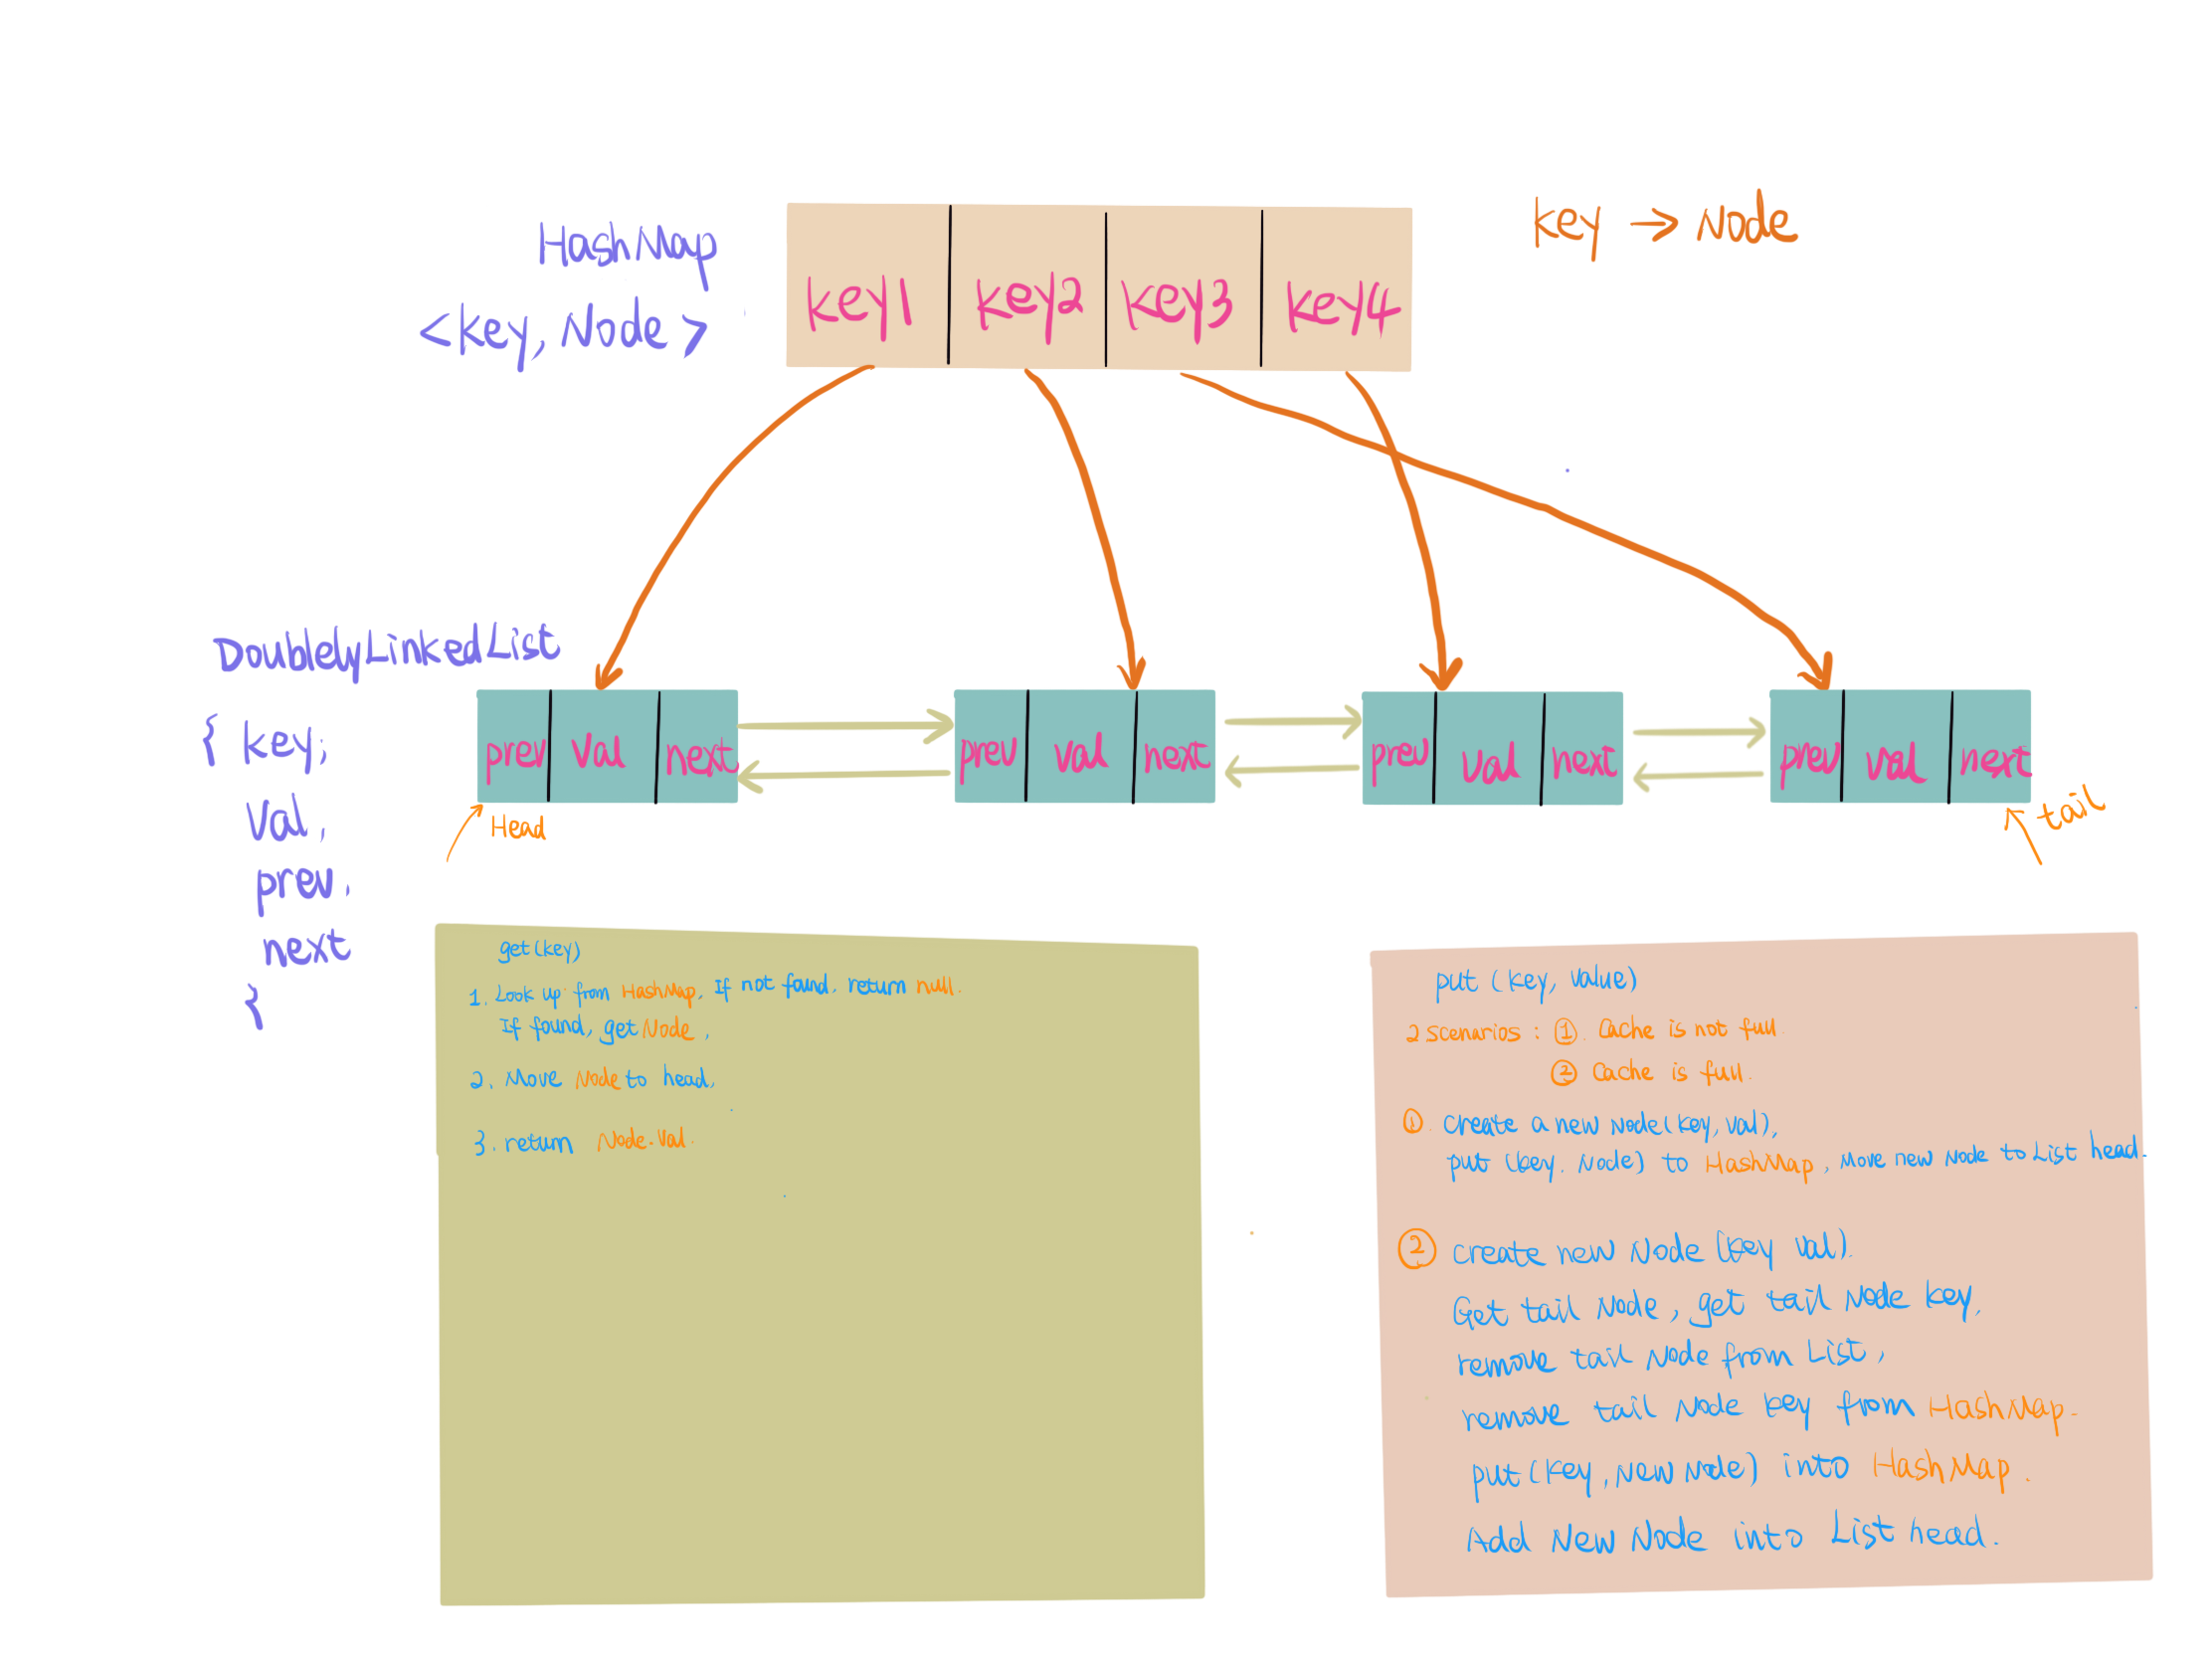 HashMap
<key, Node>
key1 key2 key3 key4
key → Node
DoublelyLinkedList
{ key;
Val,
prev,
next
}
prev val next
prev val next
prev val next
prev val next
Head
tail
get (key)
1. Look up from HashMap, If not found, return null.
If found, get Node,
2. Move Node to head,
3. return Node.Val.
put (key, value)
2 scenarios: ①. Cache is not full.
② Cache is full.
①. create a new node (key, val),
put (key, Node) to HashMap, Move new Node to List head.
② create new Node (key val).
Get tail Node, get tail Node key,
remove tail Node from List,
remove tail Node key from HashMap.
put (key, new node) into HashMap.
Add New Node into List head.